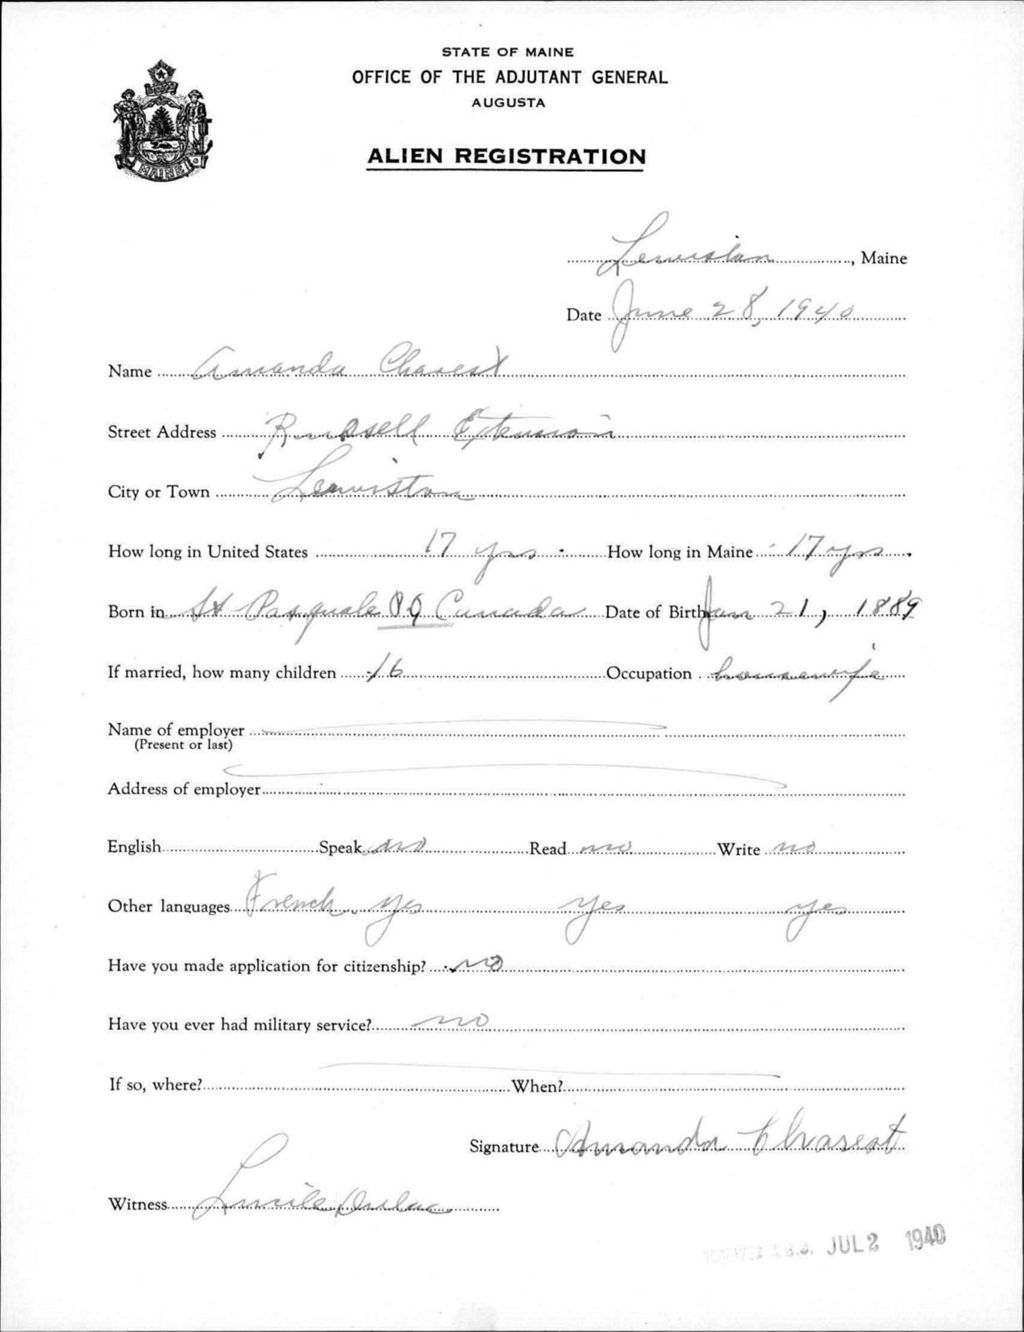 STATE OF MAINE
OFFICE OF THE ADJUTANT GENERAL
AUGUSTA
ALIEN REGISTRATION
MAINE
Lewiston, Maine
Date June 28, 1940
Name Amanda Charest
Street Address Russell Extension
City or Town Lewiston
How long in United States 17 yrs. How long in Maine 17 yrs.
Born in St Pasquale PQ Canada Date of Birth Jan 21, 1889
If married, how many children 16 Occupation housewife
Name of employer
(Present or last)
Address of employer
English Speak no Read no Write no
Other languages French. yes yes yes
Have you made application for citizenship? no
Have you ever had military service? no
If so, where? When?
Signature Amanda Charest
Witness Lucile Dulac
JUL 2 1940